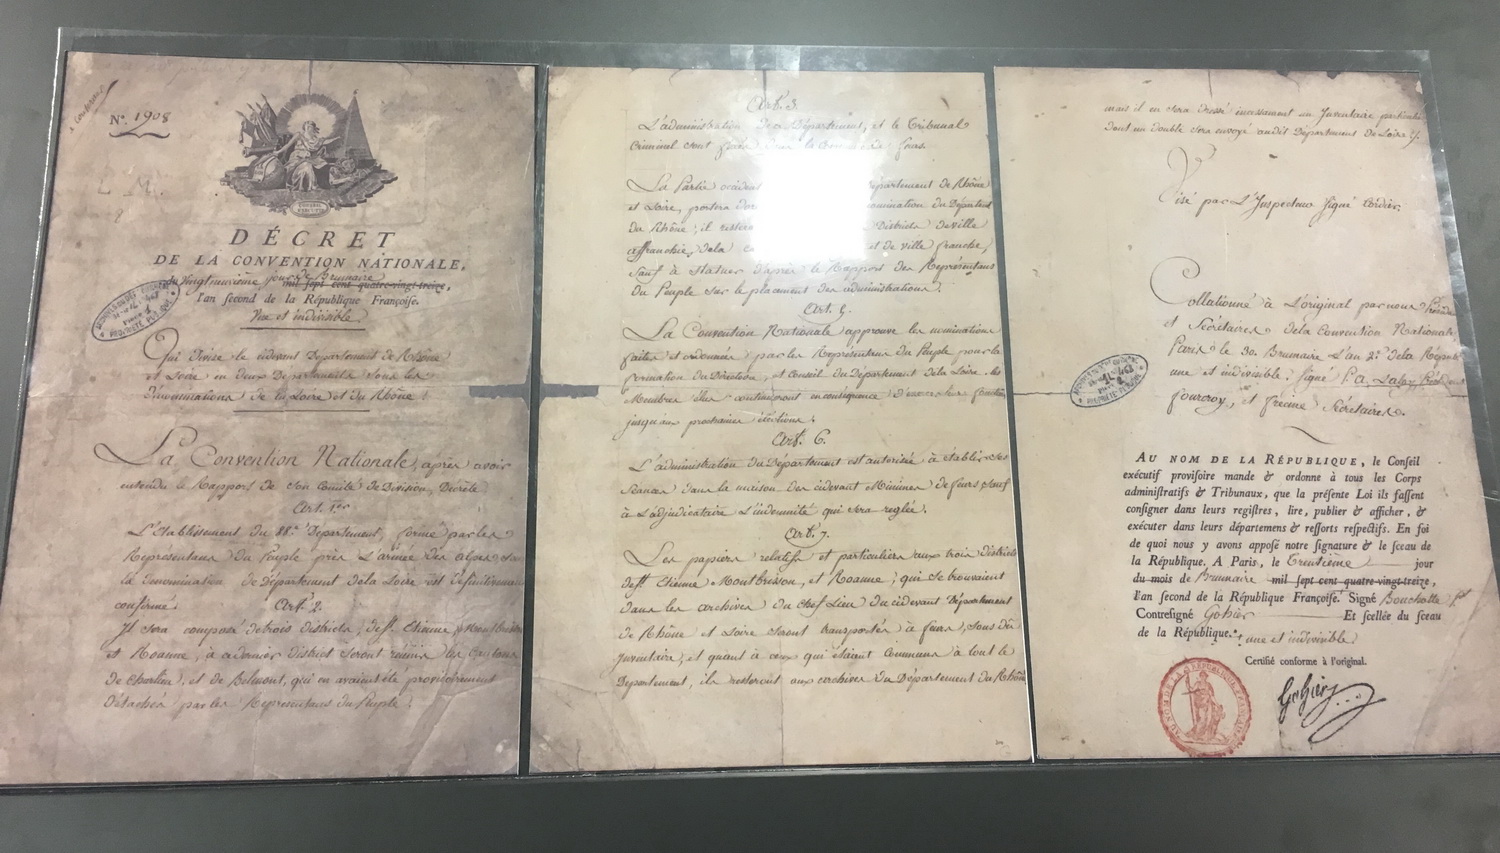 N.º 1908
DÉCRET
DE LA CONVENTION NATIONALE,
du Vingtneuvieme jour de Brumaire
mil sept cent quatre-vingt-treize,
l'an second de la République Françoise.
Une et indivisible.
Qui divise le cidevant Département de Rhône
et Loire en deux Départements sous les
Dénominations de la Loire et du Rhône.
La Convention Nationale, après avoir
entendu le Rapport de son Comité de Division, Décrète
Art. 1er
L'Etablissement du 88e Département, formé par les
Représentans du Peuple près l'armée des alpes, sous
la denomination de département dela Loire est définitivement
confirmé.
Art. 2.
Il sera composé de trois districts, de St. Etienne, Montbrison
et Roanne, à ce dernier district seront réunis les Cantons
de Charlieu et de Belmont, qui en avaient été provisoirement
détachés par les Représentans du Peuple.
Art. 3.
L'administration du Département, et le Tribunal
Criminel sont fixés dans la Commune de feurs.
La Partie occident département de Rhône
et Loire, portera dénomination du Département
du Rhône, il restera Districts de ville
affranchie, dela et de ville franche,
sauf à statuer d'après le Rapport des Représentans
du Peuple sur le placement des administrations.
Art. 5.
La Convention Nationale approuve les nominations
faites et ordonnées par les Représentans du Peuple pour la
formation du Directoire, et Conseil du département dela Loire. les
Membres élus continueront en conséquence d'exercer leurs fonctions
jusqu'aux prochaines élections.
Art. 6.
L'administration du Département est autorisée à établir ses
séances dans la maison des cidevant Minimes de feurs, sauf
à l'adjudicataire l'indemnité qui sera reglée.
Art. 7.
Les papiers relatifs et particuliers aux trois districts
de St. Etienne, Montbrison, et Roanne, qui se trouvaient
dans les archives du chef Lieu du cidevant Département
de Rhône et Loire seront transportés à feurs, sous du
Inventaire, et quant à ceux qui étaient communs à tout le
Département, ils resteront aux archives du Département du Rhône
mais il en sera dressé incessament un Inventaire particulier
dont un double sera envoyé audit Département de Loire
Visé par L'Inspecteur Signé Cordier.
Collationné à L'original par nous Président
et Secrétaires dela Convention Nationale
Paris le 30. Brumaire L'an 2e dela République
une et indivisible. Signé P. A. Laloy, Président
fourcroy, et frecine Secrétaires.
AU NOM DE LA RÉPUBLIQUE, le Conseil
exécutif provisoire mande & ordonne à tous les Corps
administratifs & Tribunaux, que la présente Loi ils fassent
consigner dans leurs registres, lire, publier & afficher, &
exécuter dans leurs départemens & ressorts respectifs. En foi
de quoi nous y avons apposé notre signature & le sceau de
la République. A Paris, le trentième jour
du mois de Brumaire mil sept cent quatre-vingt-treize,
l'an second de la République Françoise. Signé Bouchotte
Contresigné Gohier Et scellée du sceau
de la République. une et indivisible
Certifié conforme à l'original.
Gohier